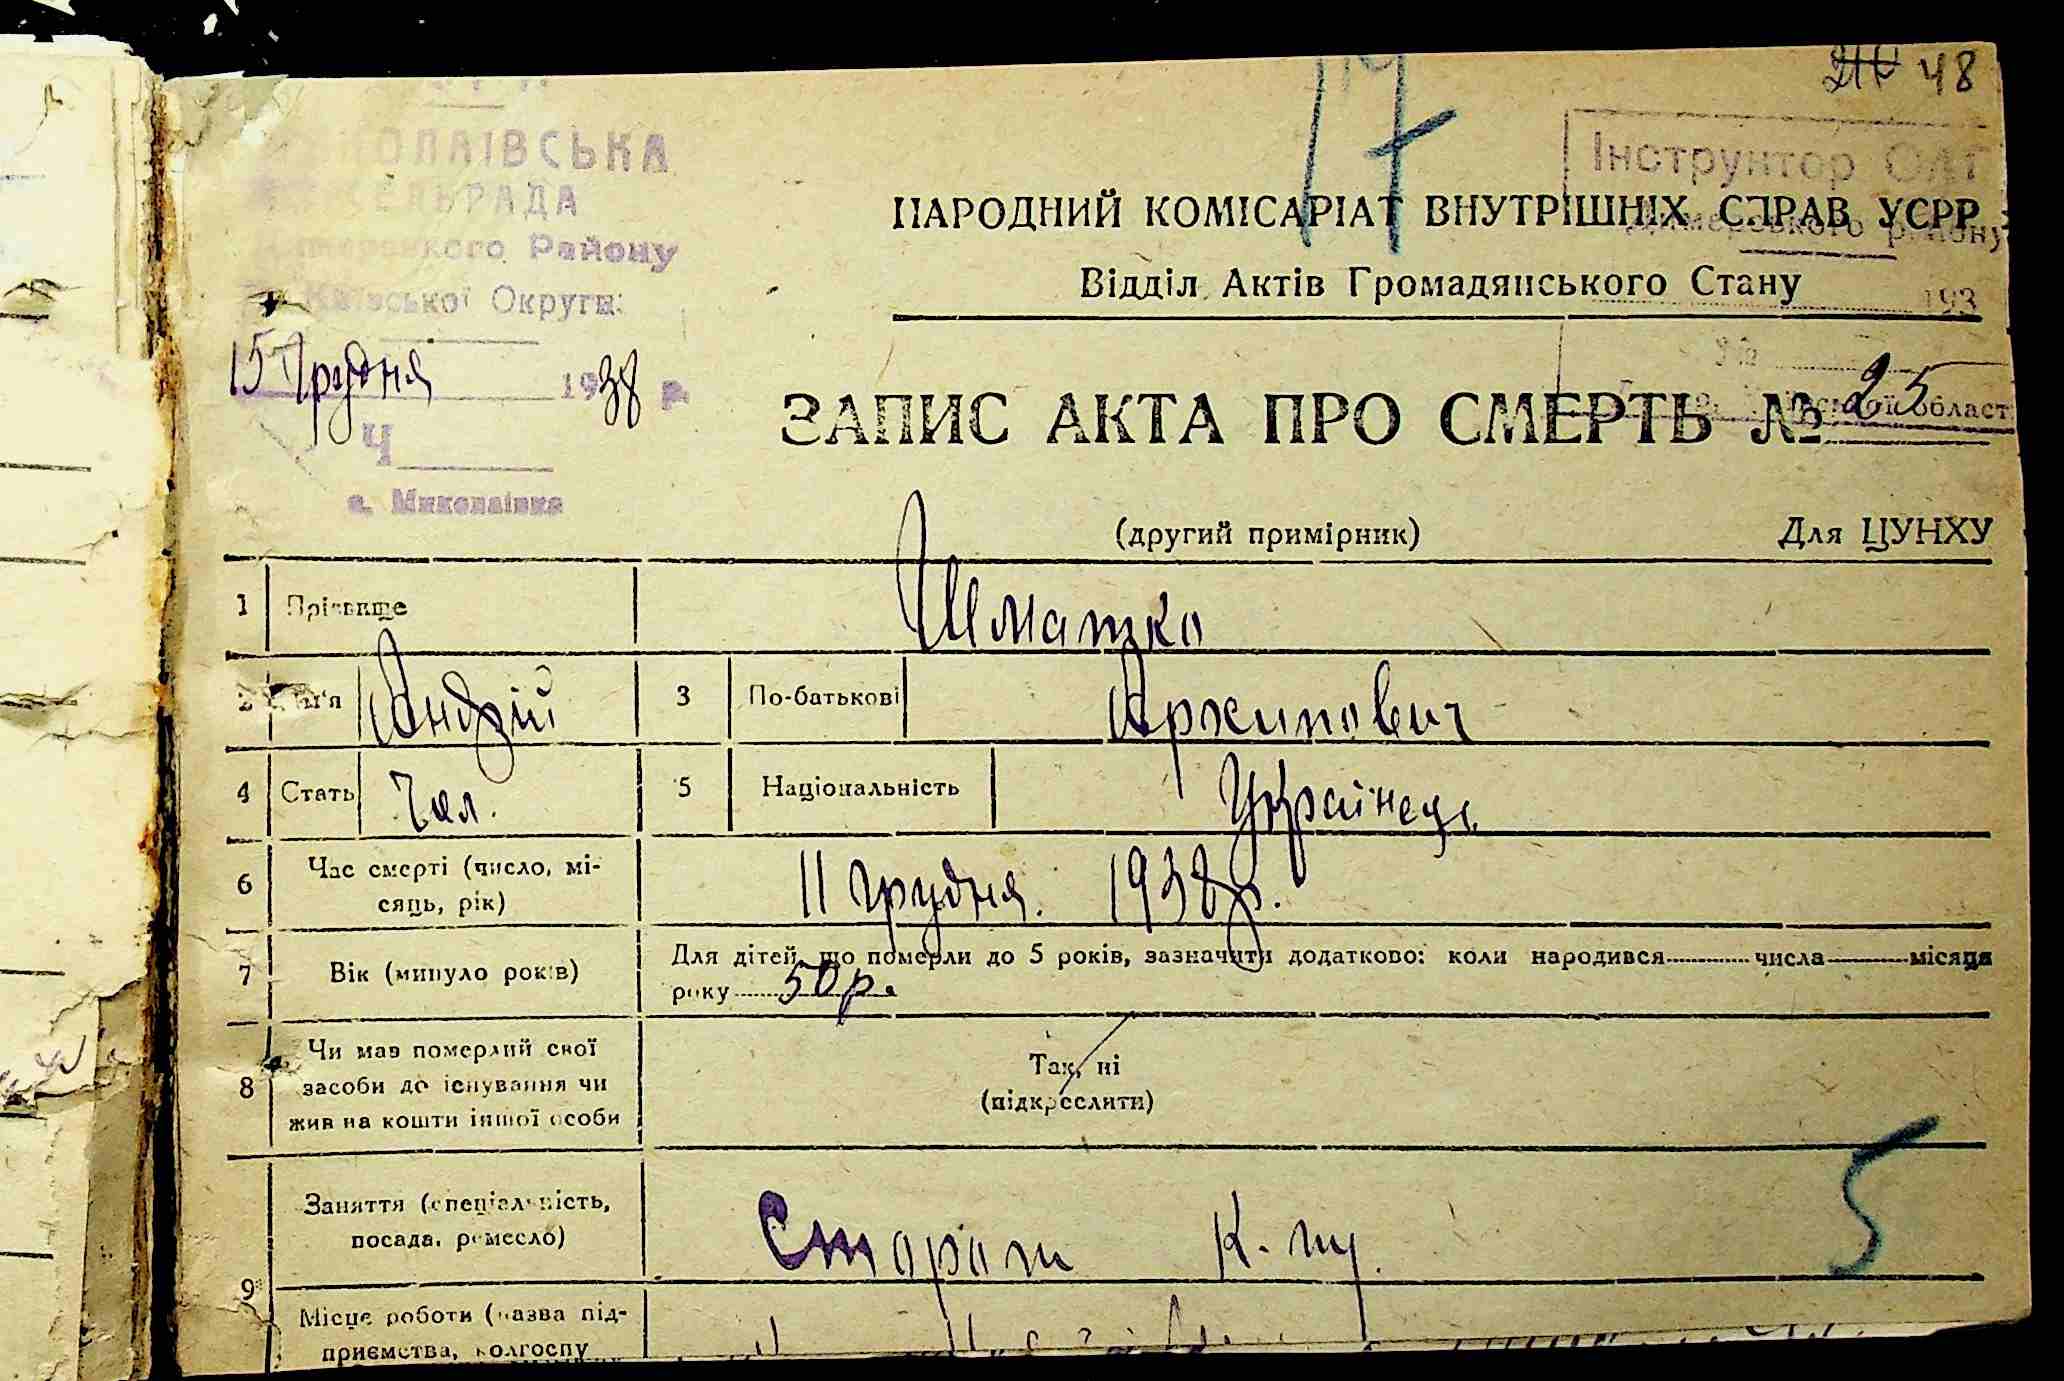 48
17
КОЛАЇВСЬКА
СЕЛЬРАДА
Району
Київської Округи
15 Грудня 1938 р.
Ч
с. Миколаївка
Інструктор
193
НАРОДНИЙ КОМІСАРІАТ ВНУТРІШНІХ СПРАВ УСРР
Відділ Актів Громадянського Стану
ЗАПИС АКТА ПРО СМЕРТЬ № 25
(другий примірник) Для ЦУНХУ
1 Прізвище Шматко
2 Ім'я Андрій 3 По-батькові Архипович
4 Стать Чол. 5 Національність Українець
6 Час смерті (число, мі-
сяць, рік) 11 грудня. 1938р.
7 Вік (минуло років) Для дітей, що померли до 5 років, зазначити додатково: коли народився числа місяця
року 50 р.
8 Чи мав померлий свої
засоби до існування чи
жив на кошти іншої особи
Так, ні
(підкреслити)
9 Заняття (спеціальність,
посада, ремесло) Сторож
5
Місце роботи (назва під-
приємства, колгоспу